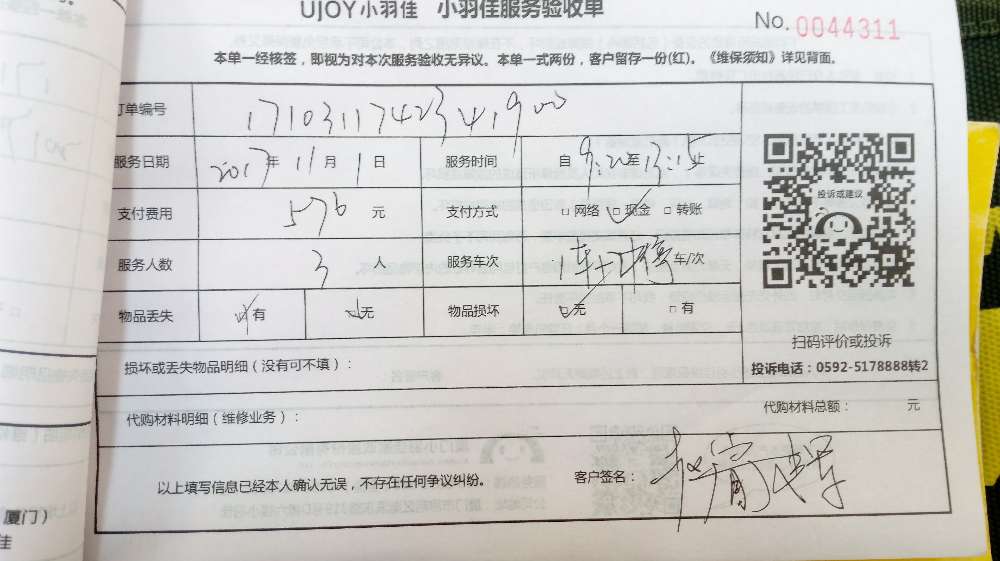 UJOY小羽佳 小羽佳服务验收单
No. 0044311
本单一经核签，即视为对本次服务验收无异议。本单一式两份，客户留存一份(红)。《维保须知》详见背面。
订单编号 1710311742341900
服务日期 2017年 11月 1日 服务时间 自 9:20至13:15止
支付费用 576 元 支付方式 □网络 □现金 □转账
投诉或建议
服务人数 3 人 服务车次 车/次
物品丢失 □有 □无 物品损坏 □无 □有
扫码评价或投诉
损坏或丢失物品明细（没有可不填）：
投诉电话：0592-5178888转2
代购材料明细（维修业务）： 代购材料总额： 元
以上填写信息已经本人确认无误，不存在任何争议纠纷。 客户签名：
厦门）
佳